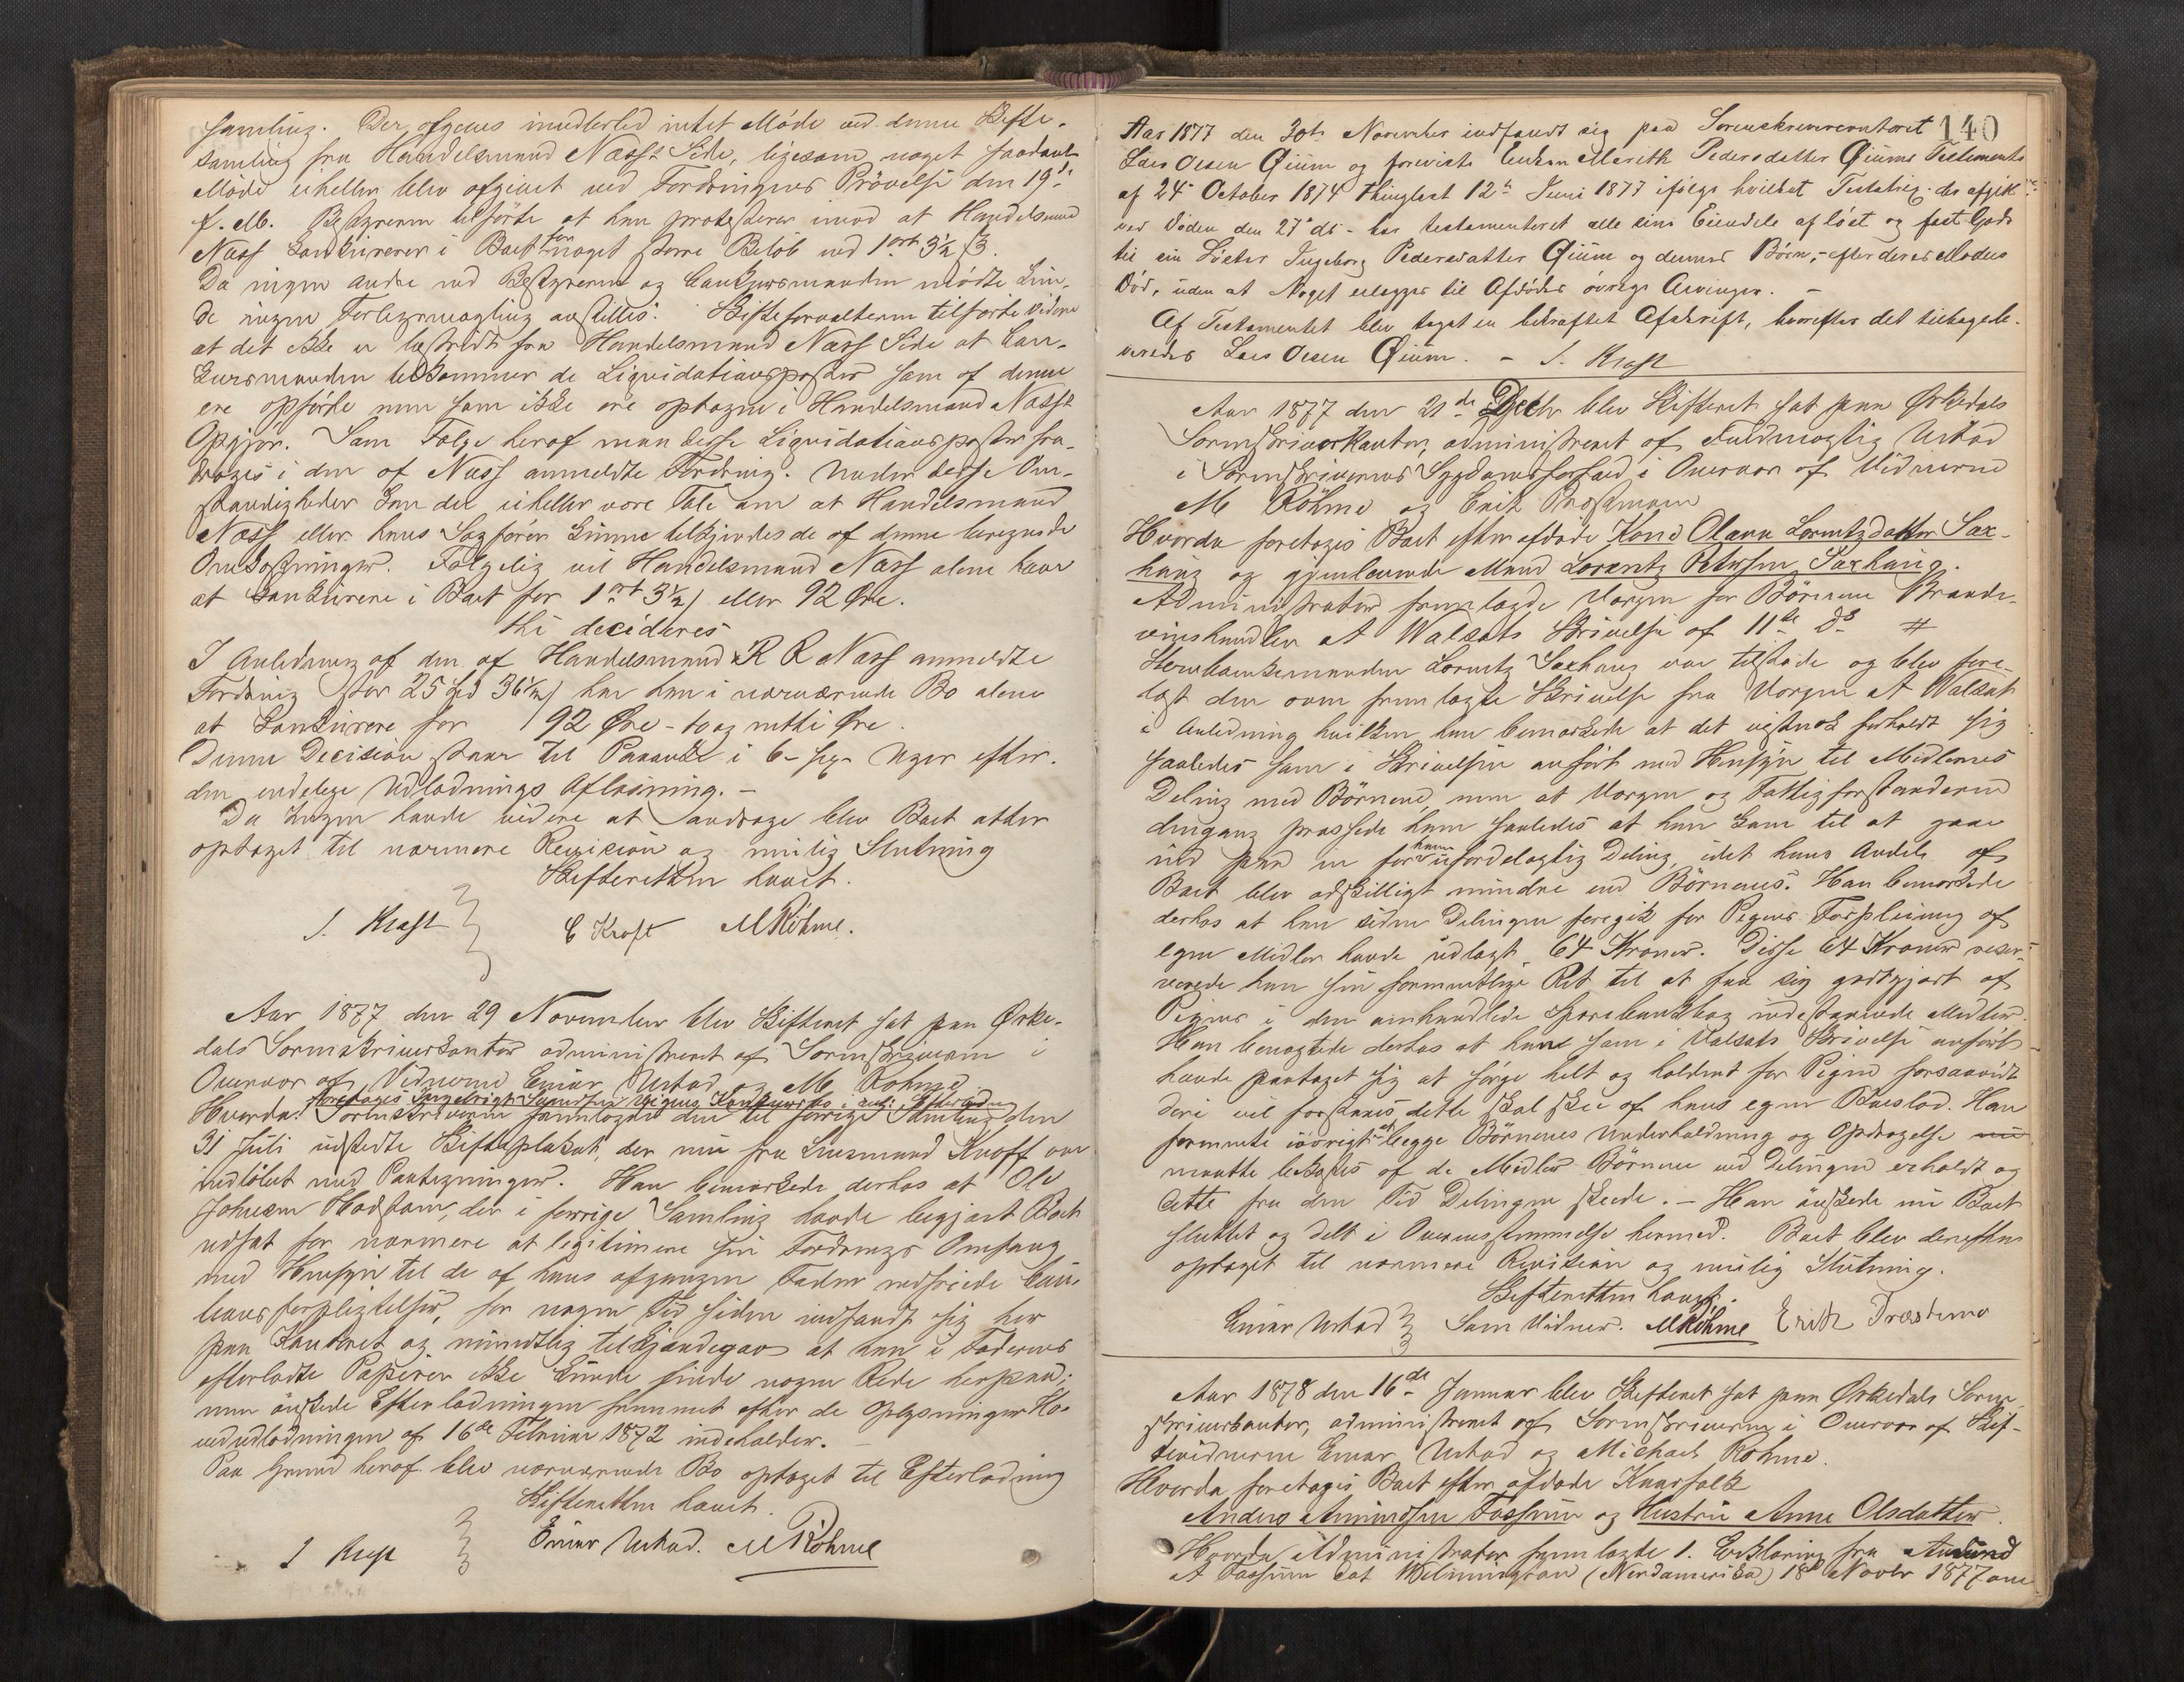 samling. Der afgaves imidlertid intet Møde ved denne Skifte-
samling fra Handelsmand Næss's Side, ligesom noget saadant
Møde ei heller blev afgivet ved Fordringens Prövelse den 19de
f. M. Bestyreren tilførte at han protesterer imod at Handelsmand
Næss konkurrerer i Boet for noget større Beløb end 1 ort 3½ ß.
Da ingen andre end Bestyreren og Concursmanden mødte kun-
de ingen Forligsmægling anstilles. Skifteforvalteren tilførte videre
at det ikke er bestridt fra Handelsmand Næss Side at Con-
kursmanden tilkommer de Liqvidationsposter som af denne
ere opførte men som ikke ere optagne i Handelsmand Næss's
Opgjør. Som Følge heraf maa disse Liqvidationsposter fra-
drages i den af Næss anmeldte Fordring. Under disse Om-
stændigheder kan der ei heller være Tale om at Handelsmand
Næss eller hans Sagfører kunne tilkjendes de af denne beregnede
Omkostninger. Følgelig vil Handelsmand Næss alene have
at konkurrere i Boet for 1 ort 3½ ß eller 92 Øre.
thi decideres
I Anledning af den af Handelsmand R R Næss anmeldte
Fordring stor 25 Spd 36½ ß har han i nærværende Bo alene
at konkurrere for 92 Øre - to og nitti Øre.
Denne Decision staar til Paaanke i 6 - sex - Uger efter
den endelige Udlodnings Aflæsning. -
Da Ingen havde videre at andrage blev Boet atter
optaget til nærmere Revision og mulig Slutning
Skifteretten hævet.
J. Kraft C Kraft M Röhme.
Aar 1877 den 29 November blev Skifteret sat paa Ørke-
dals Sorenskriverkontor administreret af Sorenskriveren i
Overvær af Vidnerne Einar Ustad og M. Röhme.
Hvorda: foretoges Ingebrigt
Sorenskriveren fremlagde den til forrige Samling den
31 Juli udstedte Skifteplakat, der nu fra Lensmand Knoff var
indløbet med Paategninger. Han bemærkede derhos at Ole
Johnsen Hodstam, der i forrige Samling havde begjært Boet
udsat for nærmere at legitimere sin Fordrings Omfang
med Hensyn til de af hans afgangne Fader indfriede Cau-
tionsforpligtelser, for nogen Tid siden indfandt sig her
paa Kontoret og mundtlig tilkjendegav at han i Faderens
efterladte Papirer ikke kunde finde nogen Rede herpaa;
men ønskede Efterlodningen fremmet efter de Oplysninger Ho-
vedudlodningen af 16de Februar 1872 indeholder. -
Paa Grund heraf blev nærværende Bo optaget til Efterlodning
Skifteretten hævet.
J Kraft Einar Ustad. M Röhme
140
Aar 1877 den 30te November indfandt sig paa Sorenskriverkontoret
Lars Olsen Qium og foreviste Enken Marith Pedersdatter Qiums Testament
af 24de October 1874 thinglæst 12te Juni 1877 ifølge hvilket Testatrix der afgik
ved Døden den 27de ds - har testamenteret alle sine Eiendele af løst og fast Gods
til sin Søster Ingeborg Pedersdatter Qium og dennes Børn, - efter deres Moders
Død, uden at Noget erlægges til Afdødes øvrige Arvinger. -
Af Testamentet blev taget en bekræftet Afskrift, hvorefter det tilbagele-
veredes Lars Olsen Qium. - J. Kraft
Aar 1877 den 21de Decbr blev Skifteret sat paa Ørkedals
Sorenskriverkontor, administreret af Fuldmægtig Ustad
i Sorenskriverens Sygdomsforfald i Overvær af Vidnerne
M Röhme og Erik Træthmoen
Hvorda foretoges Boet efter afdøde Kone Olava Lorentzdatter Sax-
haug og gjenlevende Mand Lorentz Petersen Saxhaug.
Administrator fremlagde Vergen for Børnene Brænde-
vinshandler A Walsets Skrivelse af 11te ds #
Sterverbankemanden Lorentz Saxhaug var tilstede og blev fore-
læst den som fremlagte Skrivelse fra Vergen A Walset
i Anledning hvilken han bemærkede at det vistnok forholdt sig
saaledes som i Skrivelsen anført med Hensyn til Midlernes
Deling med Børnene, men at Vergen og Fattigforstanderne
dengang pressede ham saaledes at han kom til at gaae
ind paa en for ham ufordelagtig Deling, idet hans Andele af
Boet blev adskilligt mindre end Børnenes. Han bemærkede
derhos at han siden Delingen foregik for Pigens Forpleining af
egne Midler havde udlagt 64 Kroner. Disse 64 Kroner reser-
verede han sin formentlige Ret til at faa sig godtgjort af
Pigens i den omhandlede Sparebankbog indestaaende Midler.
Han benægtede derhos at have som i Valsets Skrivelse anført
havde paataget sig at sørge helt og holdent for Pigen forsaavidt
deri vil forstaaes, dette skal ske af hans egen Boeslod. Han
formente iøvrigt at begge Børnenes Underholdning og Opdragelse
maatte bekostes af de Midler Børnene ved Delingen erholdt og
dette fra den Tid Delingen skeede. - Han ønskede nu Boet
sluttet og delt i Overensstemmelse hermed. Boet blev derefter
optaget til nærmere Revision og mulig Slutning.
Skifteretten hævet.
Einar Ustad Som Vidner. M Röhme Erik Træthmo
Aar 1878 den 16de Januar blev Skifteret sat paa Ørkedals Soren-
skriverkontor, administreret af Sorenskriveren i Overvær af Skif-
tevidnerne Einar Ustad og Michael Röhme.
Hvorda foretoges Boet efter afdøde Kaarfolk
Anders Amundsen Fossum og Hustru Anne Olsdatter.
Hvorda Administrator fremlagde 1. Erklæring fra Amund
A Fossum dat Wilmington (Nordamerika) 18de Novbr 1877 om